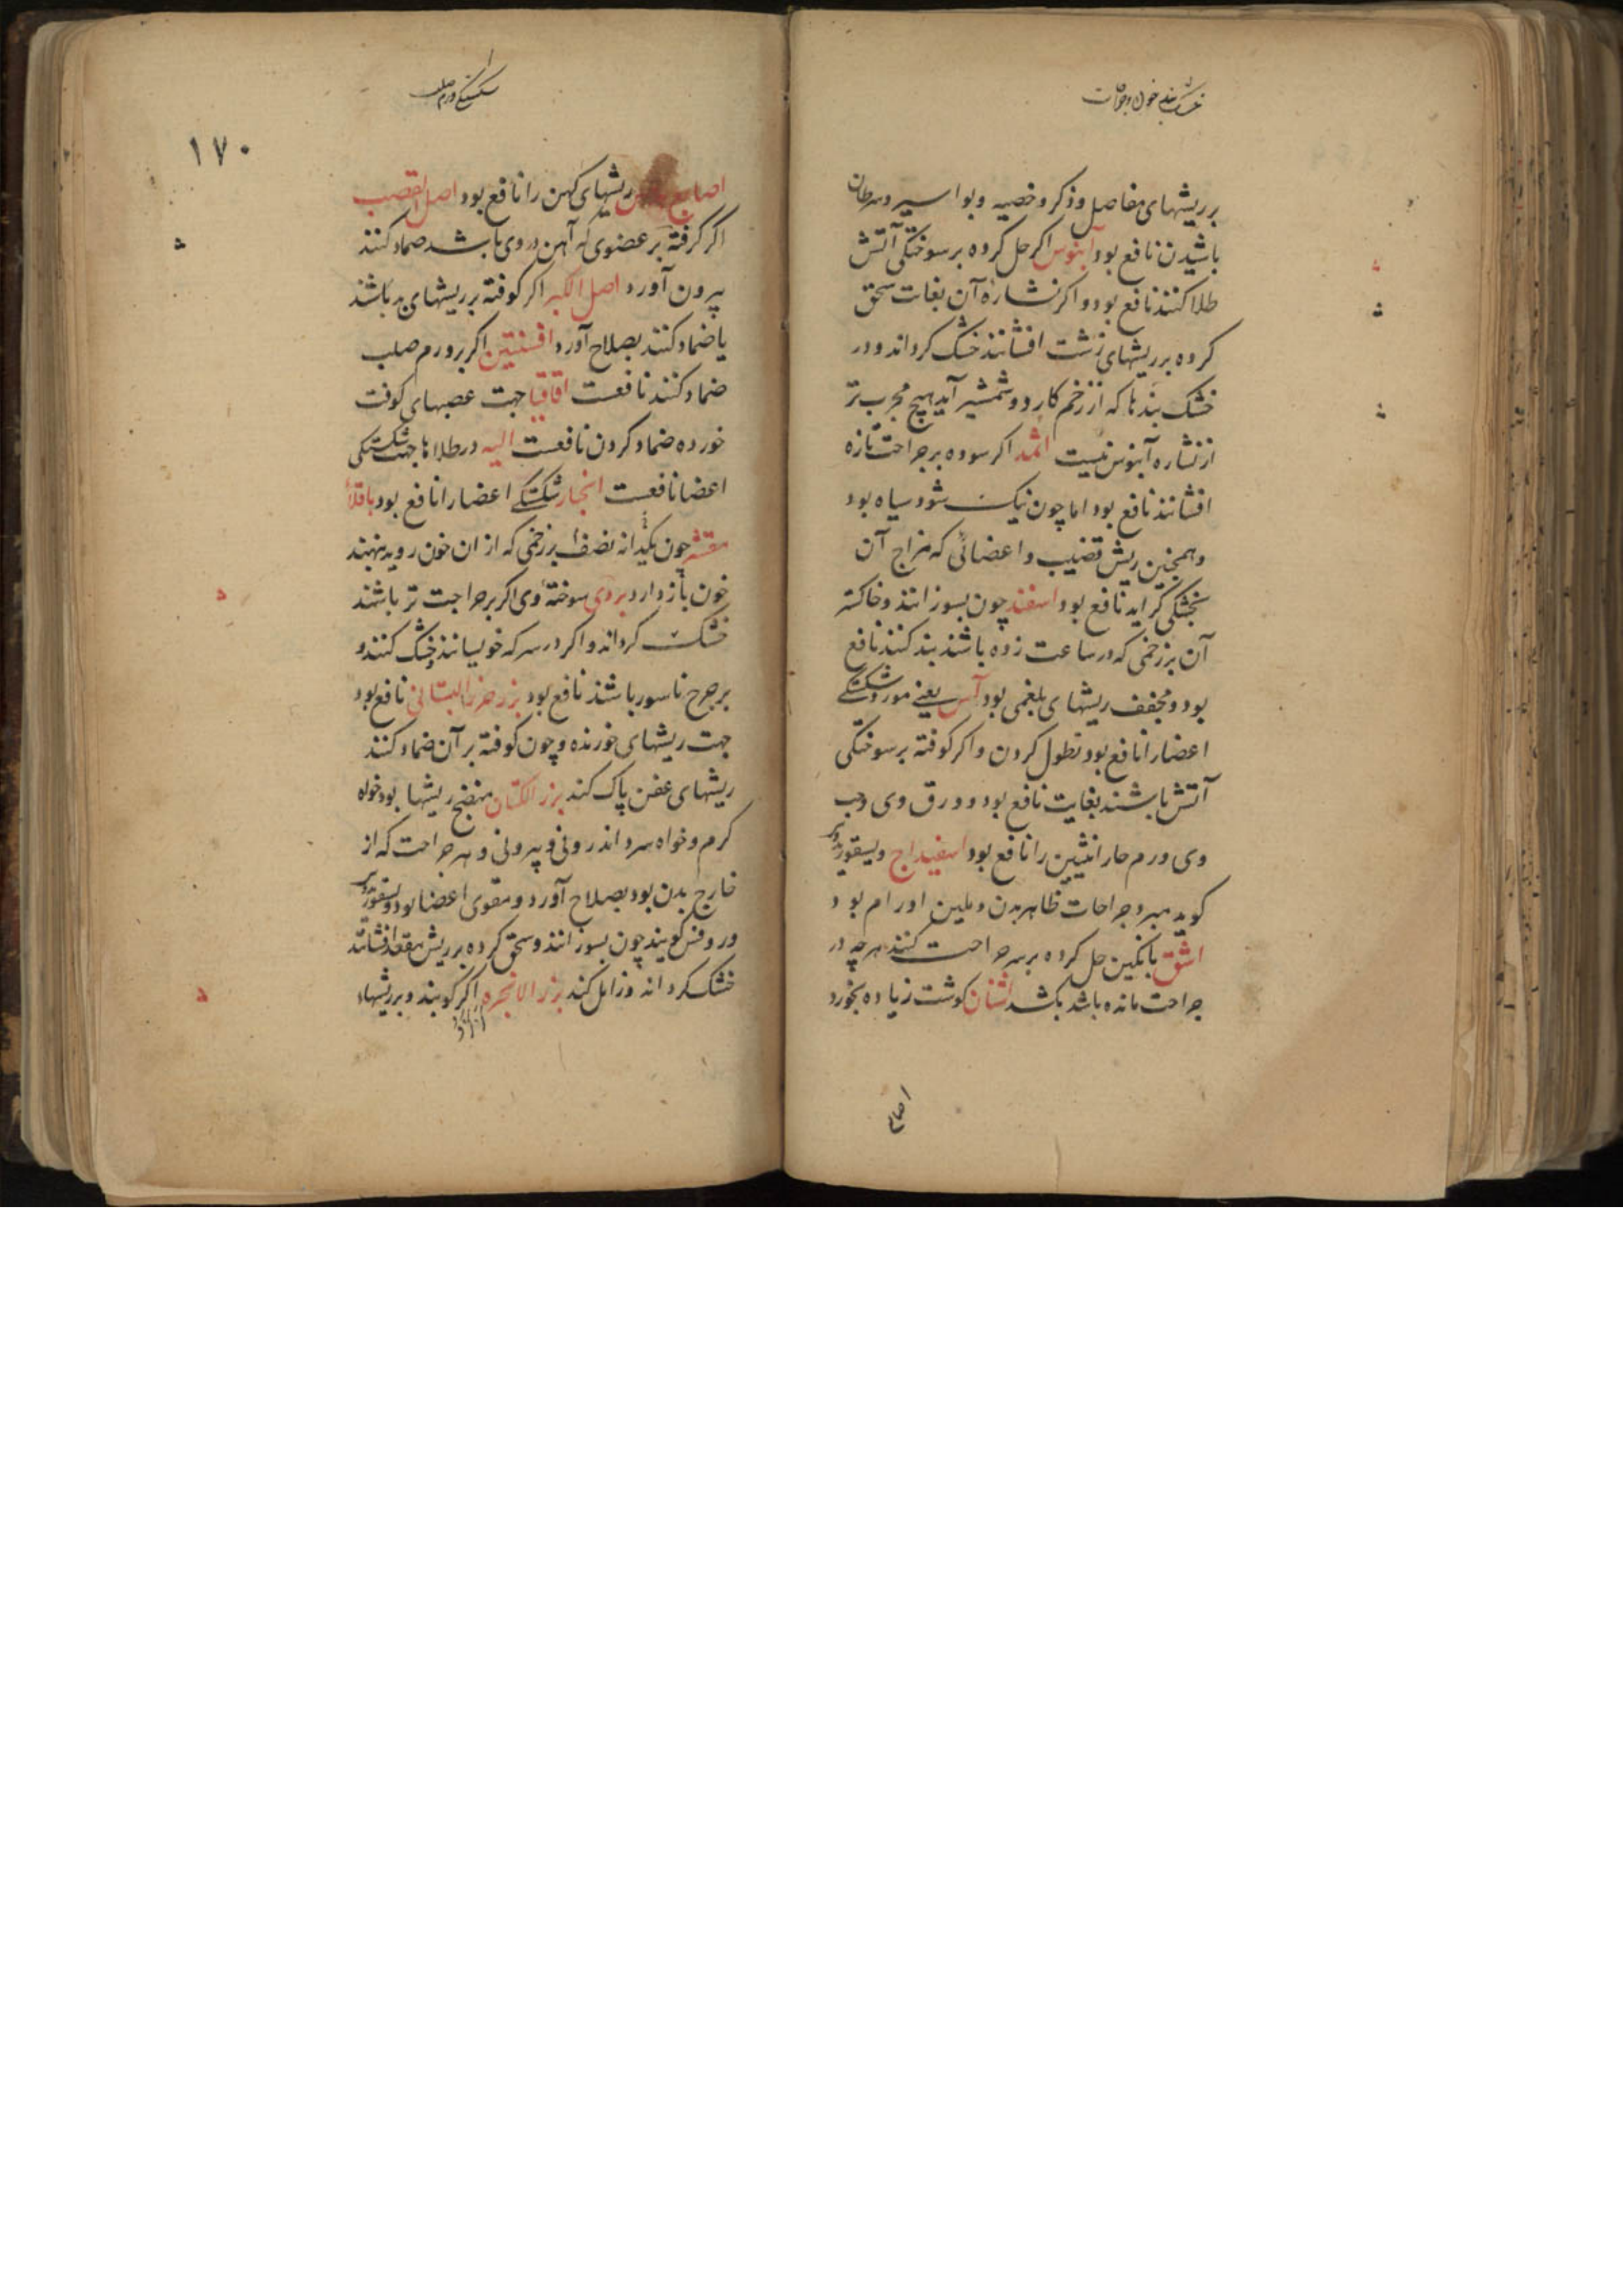 خشک بند خون و جراحات
بر ریشهای مفاصل و ذکر و خصیه و بواسیر و سرطان
باشیدن نافع بود آبنوس اکر حل کرده بر سوختکی آتش
طلا کنند نافع بود و اکر نشاره آن بغات سحق
کرده بر ریشهای زشت افشانند خشک کرداند و در
خشک بندها که از زخم کارد و شمشیر آید هیچ مجرب تر
از نشاره آبنوس نیست اثمد اکر سوده بر جراحت تازه
افشانند نافع بود اما چون نیک شود سیاه بود
و همچنین ریش قضیب و اعضائی که مزاج آن
بخشکی کراید نافع بود اسفند چون بسوزانند و خاکستر
آن بر زخمی که در ساعت زده باشند بند کنند نافع
بود و مجفف ریشهای بلغمی بود آس یعنی مورد شکستکی
اعضا را نافع بود نطول کردن و اکر کوفته بر سوختکی
آتش باشند بغایت نافع بود و ورق وی و حب
وی ورم حار انثیین را نافع بود اسفیداج و یسقوریدوس
کوید مبرد جراحات ظاهر بدن و ملین اورام بود
اشق با نکبین حل کرده بر سر جراحت کنند هر چه در
جراحت مانده باشد بکشد اشنان کوشت زیاده بخورد
اصابع
شکستکی و ورم صلب
۱۷۰
اصابع ریشهای کهن را نافع بود اصل القصب
اکر کرفته بر عضوی که آهن در وی باشد ضماد کنند
بیرون آورد اصل الکبر اکر کوفته بر ریشهای بد باشند
یا ضماد کنند بصلاح آورد افسنتین اکر بر ورم صلب
ضماد کنند نافعست اقاقیا جهت عصبهای کوفت
خورده ضماد کردن نافعست الیه در طلاها جهت شکستکی
اعضا نافعست انجبار شکستکی اعضا را نافع بود باقلاء
مقشر چون یکدانه نصف بر زخمی که از ان خون رود بنهند
خون باز دارد بردی سوخته وی اکر بر جراحت تر باشند
خشک کرداند و اکر در سرکه خویسانند و خشک کنند و
بر جرح ناسور باشند نافع بود بزر جزر البستانی نافع بود
جهت ریشهای خورنده و چون کوفته بر آن ضماد کنند
ریشهای عفن پاک کند بزر الکتان منضج ریشها بود خواه
کرم و خواه سرد اندرونی و بیرونی و هر جراحت که از
خارج بدن بود بصلاح آورد و مقوی اعضا بود و یسقوریدوس
و روفس کویند چون بسوزانند و سحق کرده بر ریش مقعد افشانند
خشک کرداند و زایل کند بزر الانجره اکر کوبند و بر ریشهاء